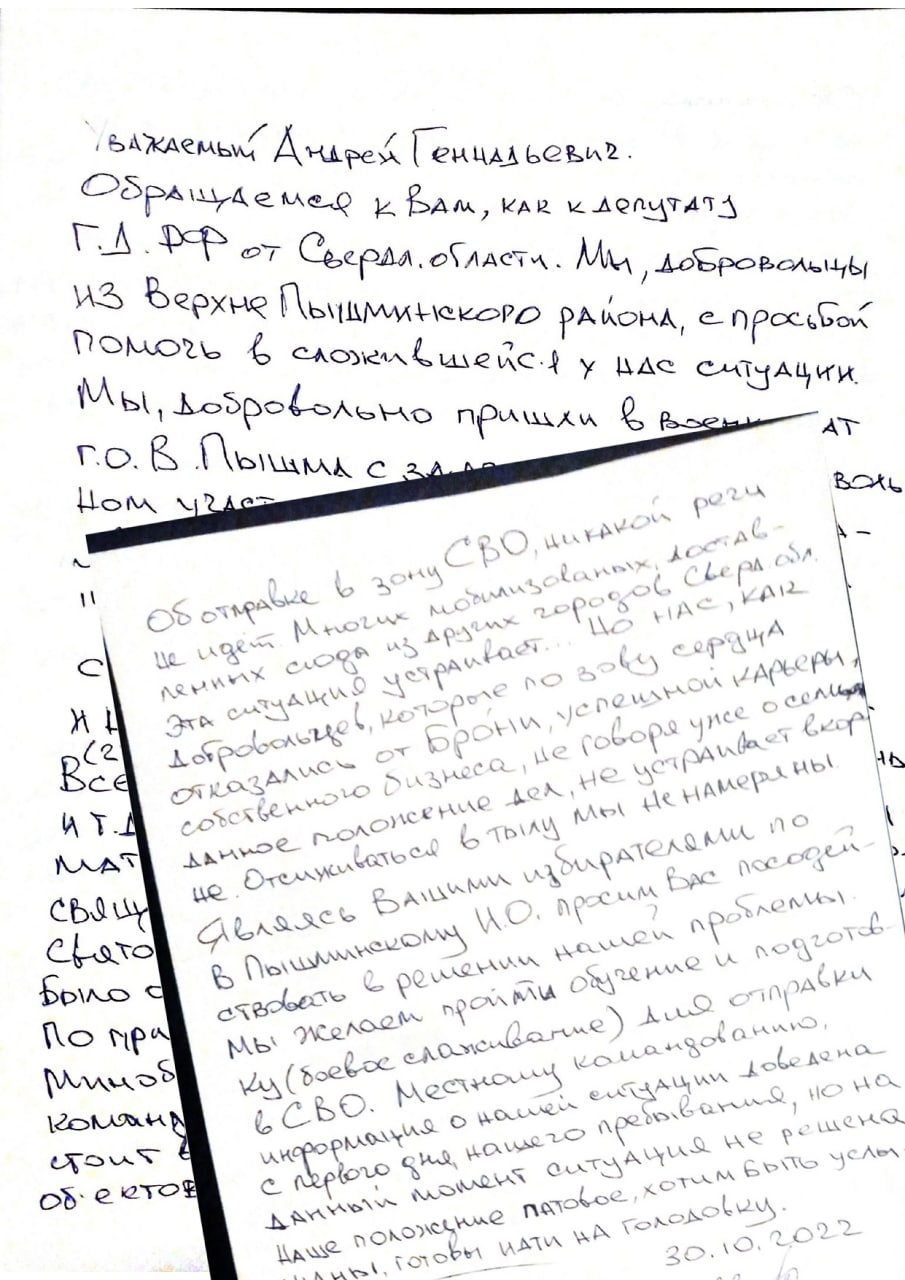 Уважаемый Андрей Геннадьевич.
Обращаемся к Вам, как к депутату
Г.Д. РФ от Свердл. области. Мы, добровольцы
из Верхне Пышминского района, с просьбой
помочь в сложившейся у нас ситуации.
Мы, добровольно пришли в воен ат
г.о. В.Пышма с
ном участ воль
а-
С
и н
(2
Все
и т.д
мат
свящ
Свято
было с
По при
Миноб
команд
стоит в
объектов
Об отправке в зону СВО, никакой речи
не идёт. Многих мобилизованых, достав-
ленных сюда из других городов Сверд. обл.
эта ситуация устраивает... Но нас, как
добровольцев, которые по зову сердца
отказались от Брони, успешной карьеры,
собственного бизнеса, не говоря уже о семьях
данное положение дел, не устраивает в кор-
не. Отсиживаться в тылу мы не намерены
Являясь Вашими избирателями по
В Пышминскому И.О. просим Вас посодей-
ствовать в решении нашей проблемы.
Мы желаем пройти обучение и подготов-
ку (боевое слаживание) для отправки
в СВО. Местному командованию,
информация о нашей ситуации доведена
с первого дня, нашего пребывания, но на
данный момент ситуация не решена
Наше положение патовое, хотим быть услы-
шаны, готовы идти на голодовку.
30.10.2022